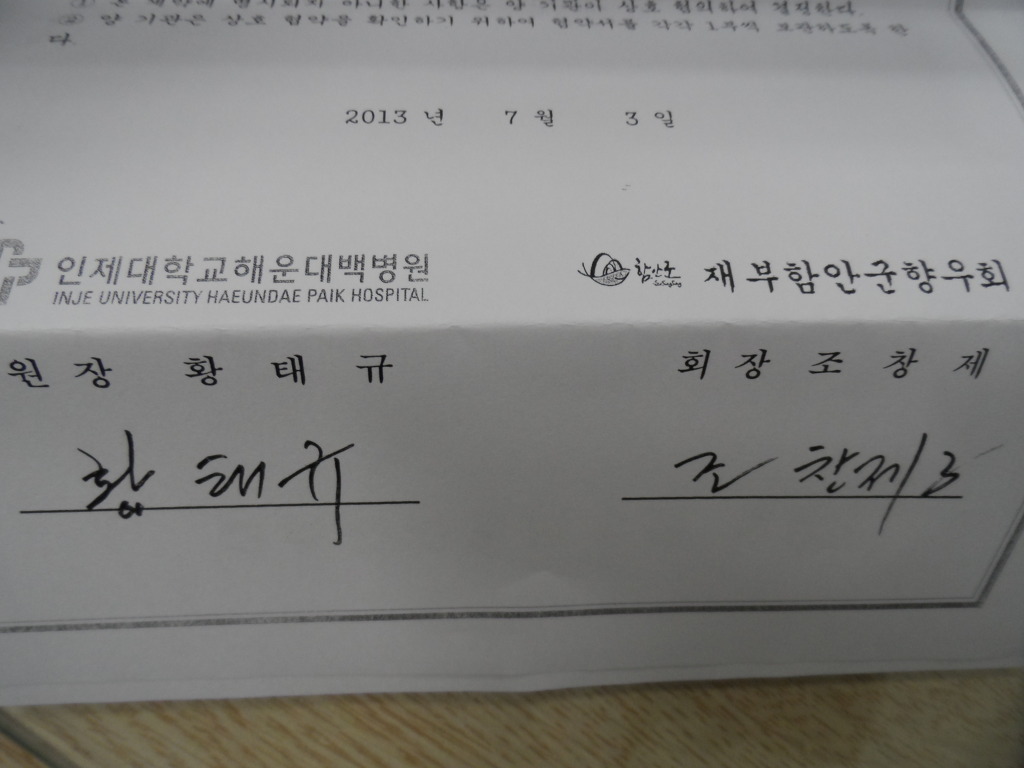 ① 본 협약에 명시되지 아니한 사항은 양 기관이 상호 협의하여 결정한다.
② 양 기관은 상호 협약을 확인하기 위하여 협약서를 각각 1부씩 보관하도록 한
다.
2013 년 7 월 3 일
인제대학교해운대백병원
INJE UNIVERSITY HAEUNDAE PAIK HOSPITAL
함안군 재부함안군향우회
원 장 황 태 규
회 장 조 창 제
황 태 규
조 창제